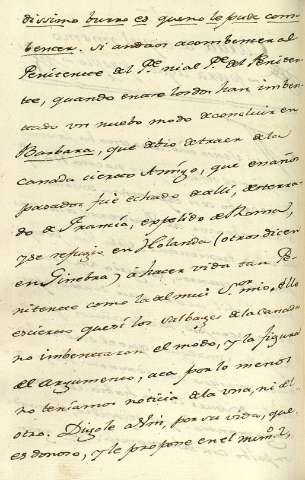 dissimo burro es que no le pude com-
bencer. Si andais a combencer al
Penitente del Pe ni al Pe del Peniten-
te, quando entre los dos han imben-
tado un nuebo modo de concluir en
Barbara, que dio de traer de la
Canada cierto Amigo, que en años
pasados fue echado de alli, desterra-
do de Francia, expelido de Roma,
y se refugio en Holanda (otros dicen
en Ginebra) à hacer vida tan Pe-
nitente como la de mui Sor mio. Ello
es cierto que si los Salbages de la Canada
no imbentaron el modo, y la figura
del Argumento, aca por lo menos
no teniamos noticia de la una, ni del
otro. Digole a Vm, por su vida, que
es donoso, y le propone en el mismo